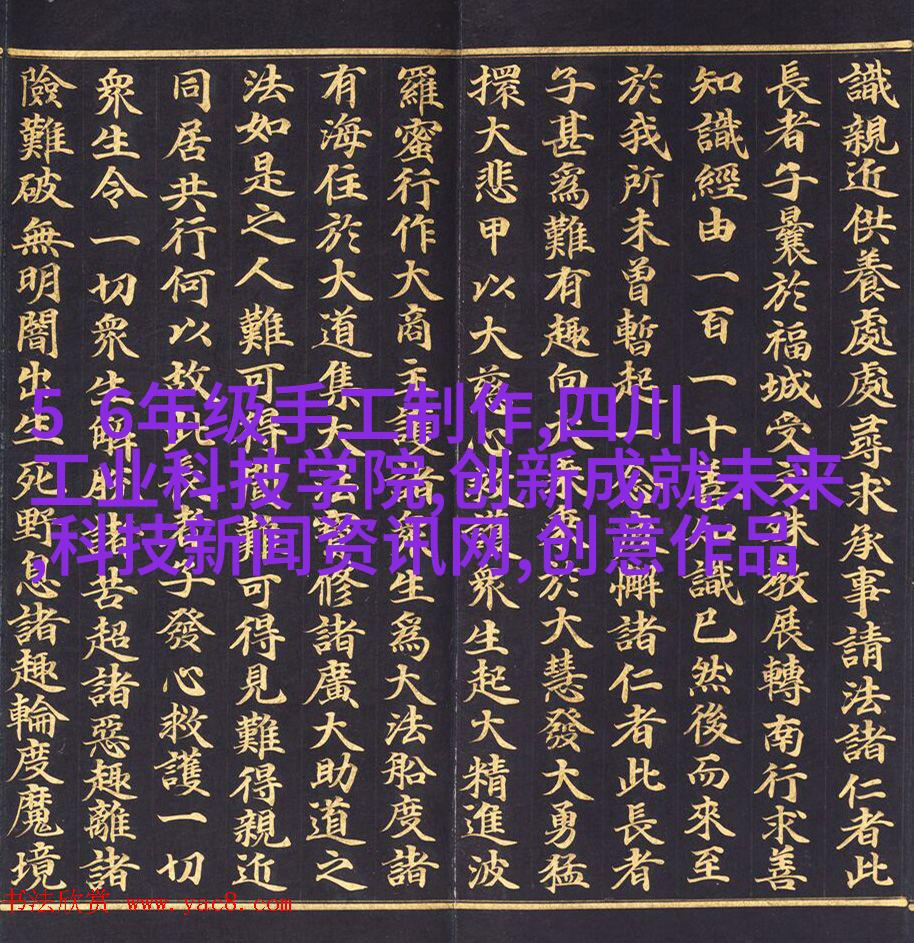 識親近供養處處尋求承事請法諸仁者此
長者子曩於福城受文殊教展轉南行求善
知識經由一百一十善知識已然後而來至
於我所未曾暫起一念懈諸仁者此長者
子甚爲難有趣向大乘於大慧發大勇猛
擐大悲甲以大慈心救護衆生起大精進波
羅蜜行作大商主護諸衆生爲大法船度諸
有海住於大道集大法寶修諸廣大助道之
法如是之人難可得聞難可得見難得親近
同居共行何以故此長者子發心救護一切
衆生令一切衆生解脫諸苦超諸惡趣離諸
險難破無明闇出生死野息諸趣輪度魔境
5  6年级手工制作,四川
工业科技学院,创新成就未来
,科技新闻资讯网,创意作品
书法欣赏 www.yac8.com